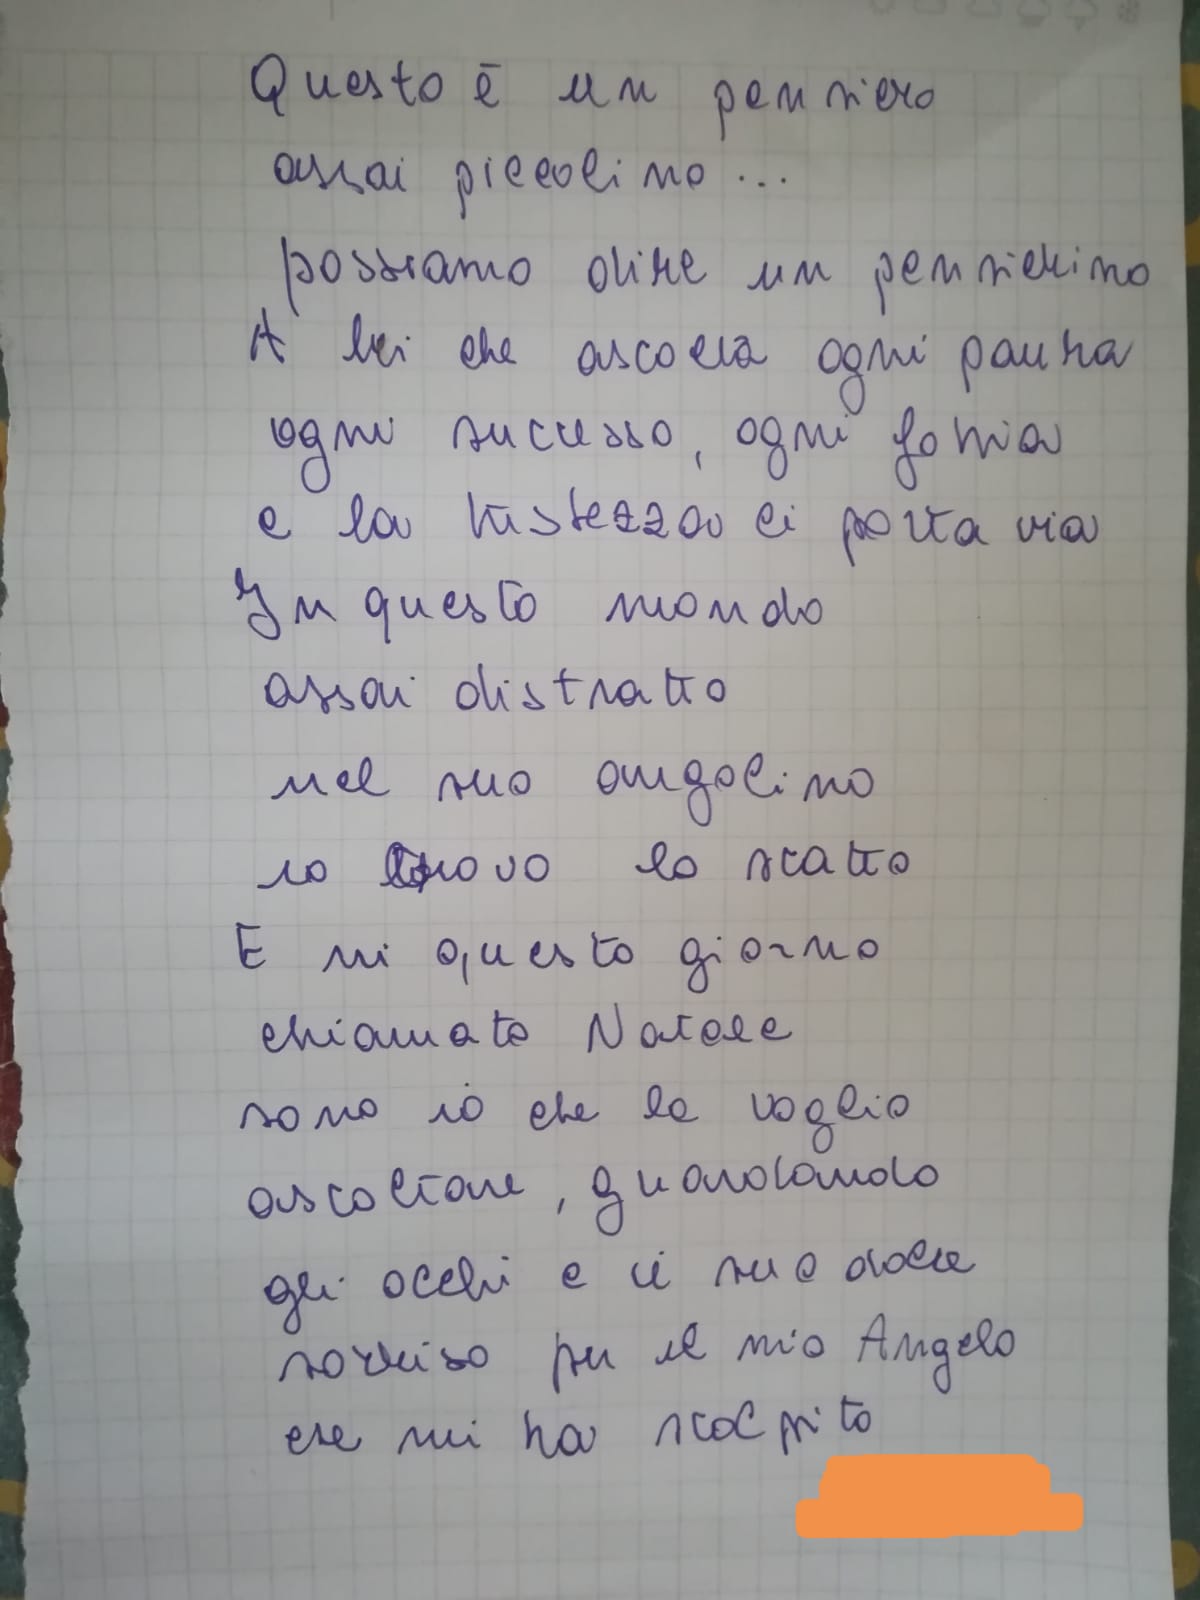 Questo è un pensiero
assai piccolino...
possiamo dire un pensierino
A lei che ascolta ogni paura
ogni successo, ogni
e la tristezza ci porta via
In questo mondo
assai distratto
nel suo angolino
io trovo lo scatto
E in questo giorno
chiamato Natale
sono io che la voglio
ascoltare, guardando
gli occhi e il suo dolce
sorriso per il mio Angelo
che mi ha scolpito